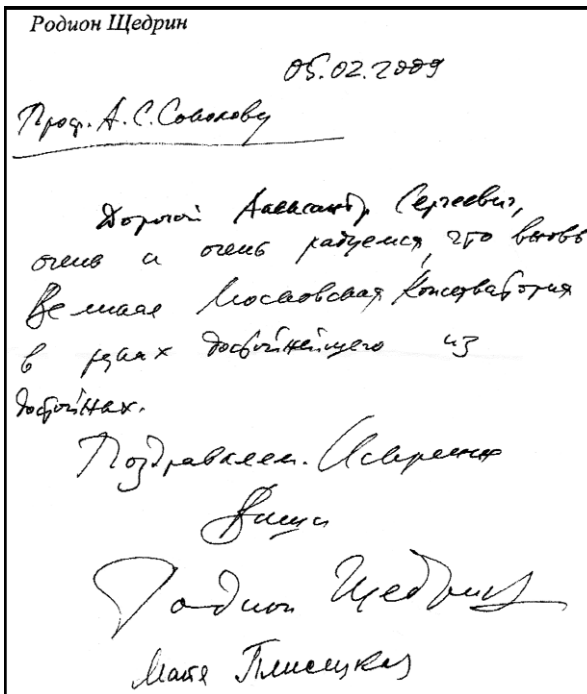 Родион Щедрин
05.02.2009
Проф. А.С. Соколову
Дорогой Александр Сергеевич,
очень и очень радуемся, что вновь
Великая Московская Консерватория
в руках достойнейшего из
достойных.
Поздравляем. Искренне
Ваши
Родион Щедрин
Майя Плисецкая